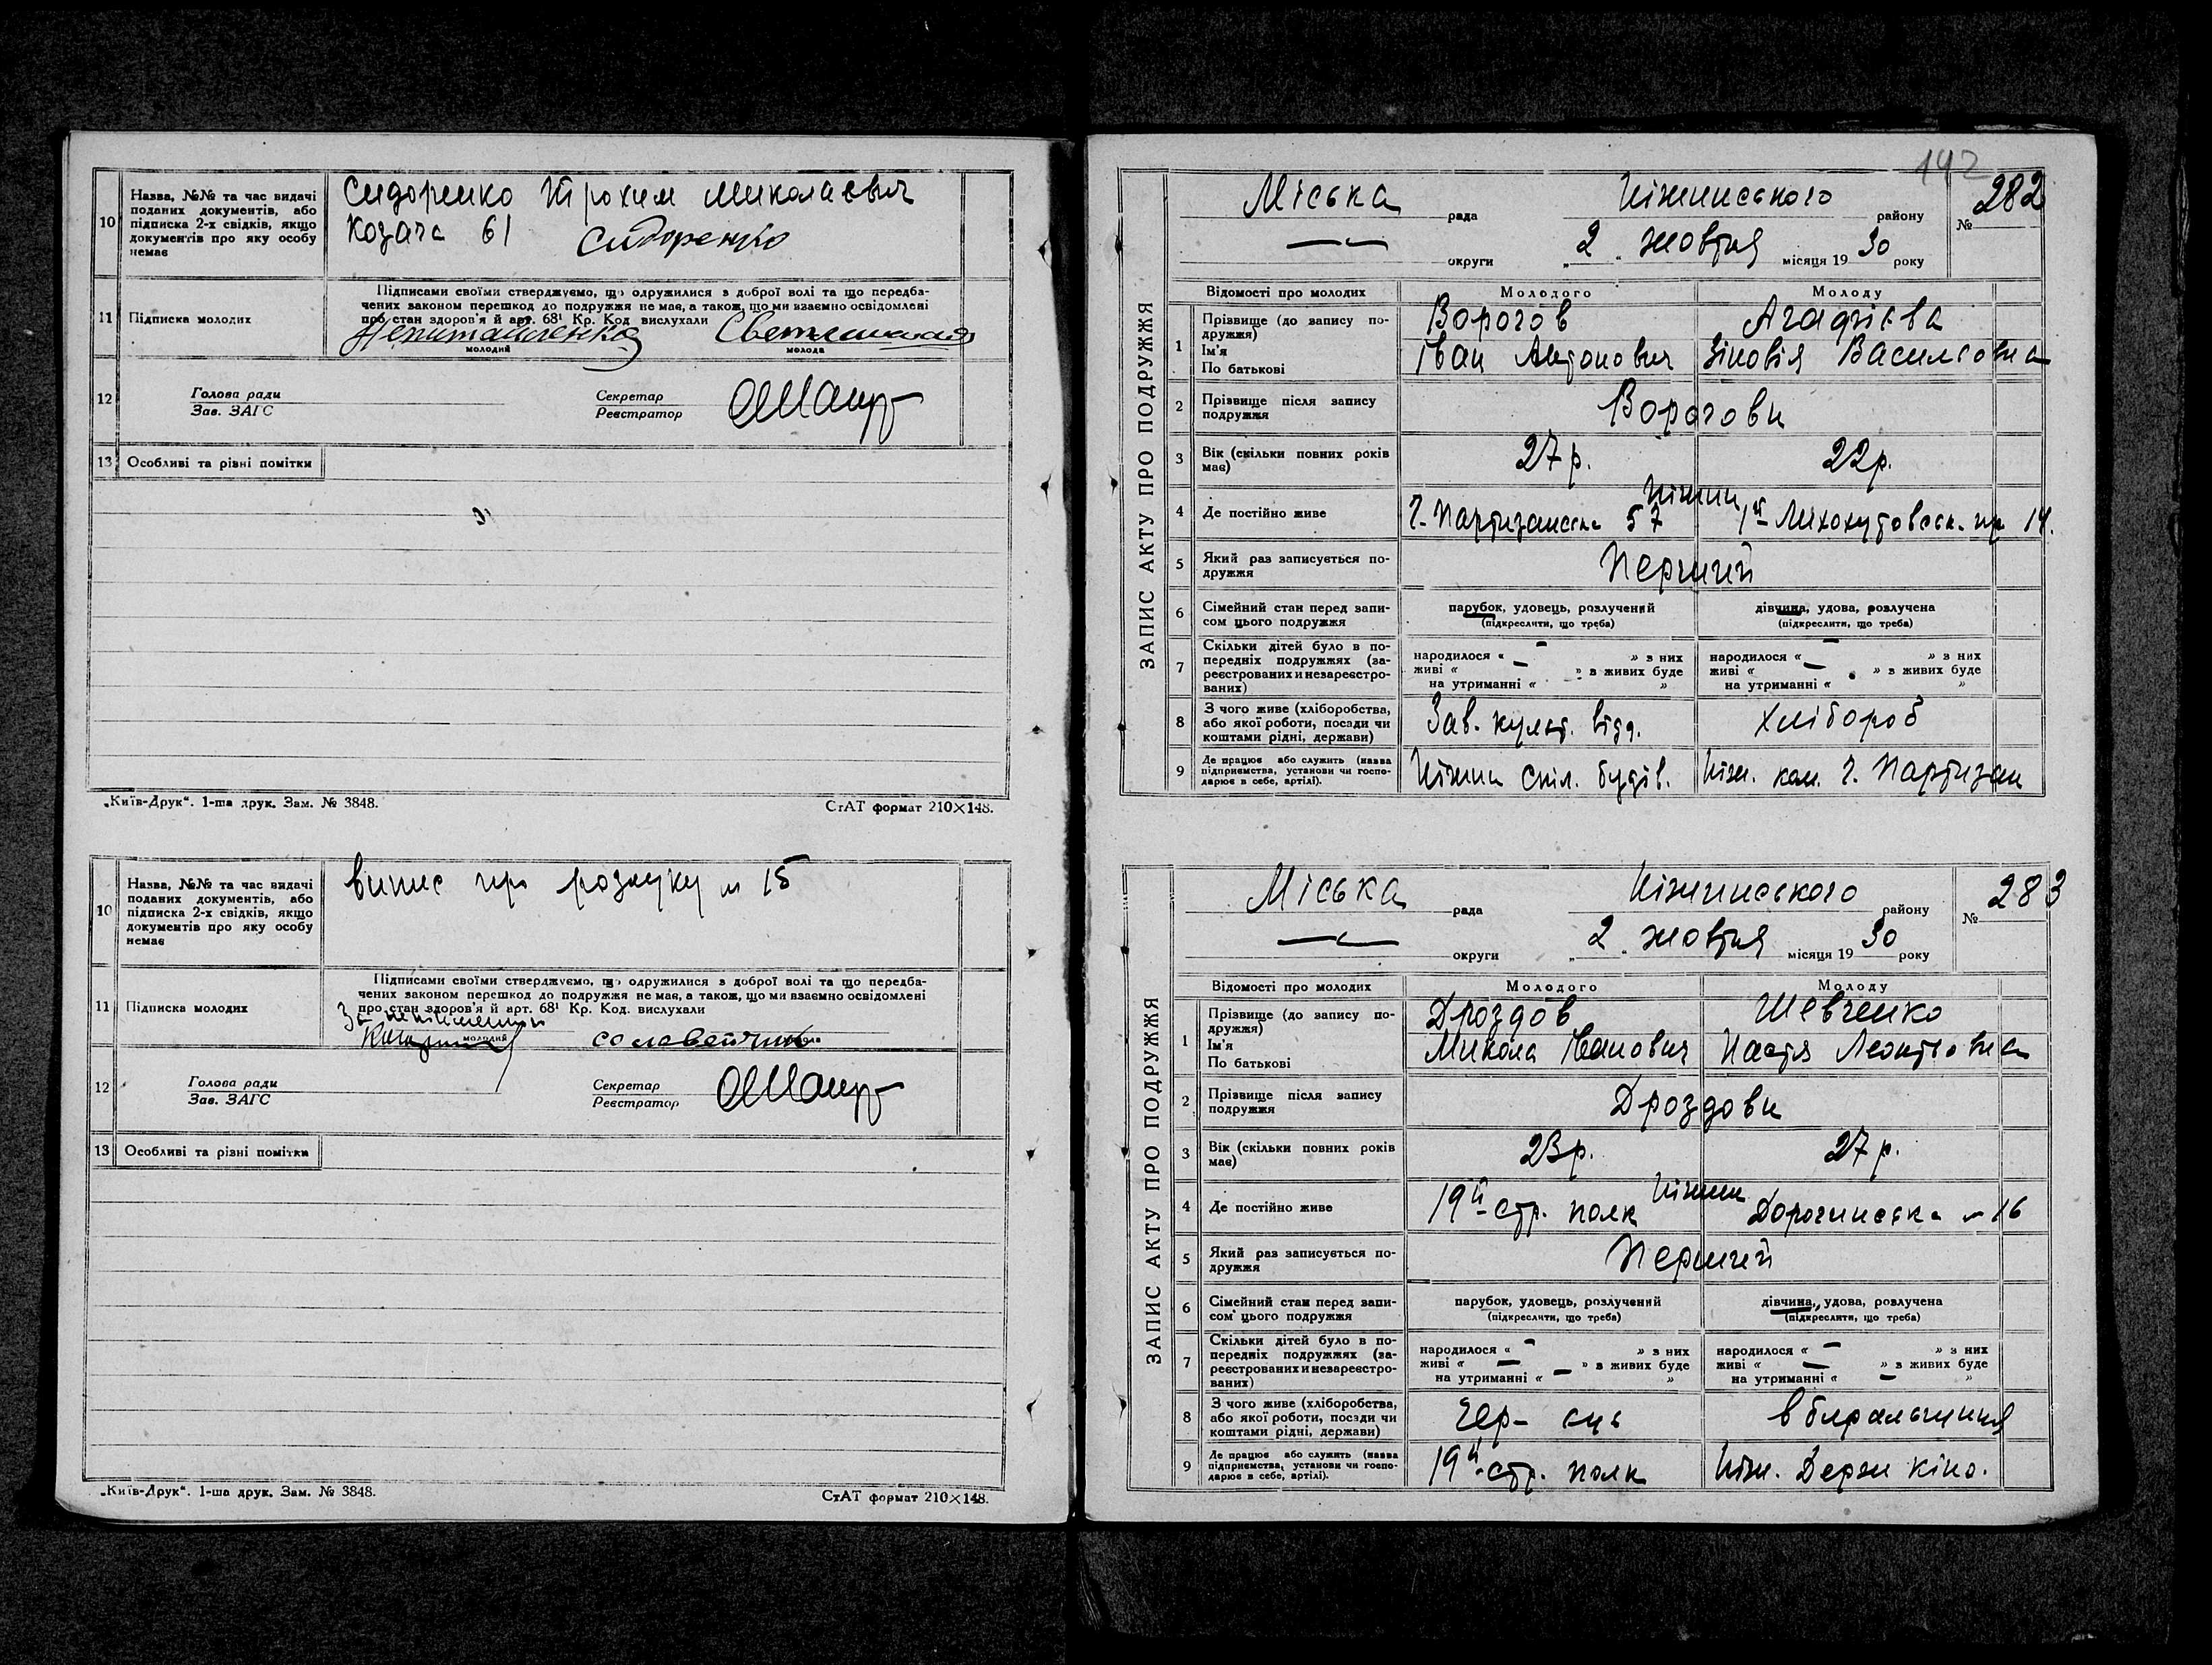 10
Назва, №№ та час видачі
поданих документів, або
підписка 2-х свідків, якщо
документів про яку особу
немає
Сидоренко Трохим Миколаєвич
Козача 61 Сидоренко
11
Підписка молодих
Підписами своїми стверджуємо, що одружилися з доброї волі та що передба-
чених законом перешкод до подружжя не має, а також, що ми взаємно освідомлені
про стан здоров'я й арт. 68¹ Кр. Код вислухали
молодий
молода
12
Голова ради
Зав. ЗАГС
Секретар
Реєстратор
13
Особливі та різні помітки
„Київ-Друк“. 1-ша друк. Зам. № 3848.
СтАТ формат 210×148.
10
Назва, №№ та час видачі
поданих документів, або
підписка 2-х свідків, якщо
документів про яку особу
немає
випис про розлуку № 15
11
Підписка молодих
Підписами своїми стверджуємо, що одружилися з доброї волі та що передба-
чених законом перешкод до подружжя не має, а також, що ми взаємно освідомлені
про стан здоров'я й арт. 68¹ Кр. Код. вислухали
молодий
12
Голова ради
Зав. ЗАГС
Секретар
Реєстратор
13
Особливі та різні помітки
„Київ-Друк“. 1-ша друк. Зам. № 3848.
СтАТ формат 210×148.
142
ЗАПИС АКТУ ПРО ПОДРУЖЖЯ
Міська рада Ніжинського району № 282
округи „2“ жовтня місяця 1930 року
Відомості про молодих
Молодого
Молоду
1
Прізвище (до запису по-
дружжя)
Ім'я
По батькові
Ворогов
Іван Антонович
Агадзієва
Зіновія Василіовна
2
Прізвище після запису
подружжя
Ворогови
3
Вік (скільки повних років
має)
27 р.
22 р.
4
Де постійно живе
Ніжин
Ч. Партизанська 57
14.
5
Який раз записується по-
дружжя
Перший
6
Сімейний стан перед запи-
сом цього подружжя
парубок, удовець, розлучений
(підкреслити, що треба)
дівчина, удова, розлучена
(підкреслити, що треба)
7
Скільки дітей було в по-
передніх подружжях (за-
реєстрованих и незареєстро-
ваних)
народилося « – » з них
живі « – » в живих буде
на утриманні « - »
народилося « – » з них
живі « – » в живих буде
на утриманні « »
8
З чого живе (хліборобства,
або якої роботи, посади чи
коштами рідні, держави)
Зав. культ. відд.
Хлібороб
9
Де працює або служить (назва
підприємства, установи чи госпо-
дарює в себе, артілі).
Ніжин Спіл. будів.
Ніж. ком. Ч. Партизан
ЗАПИС АКТУ ПРО ПОДРУЖЖЯ
Міська рада Ніжинського району № 283
округи „2“ жовтня місяця 1930 року
Відомості про молодих
Молодого
Молоду
1
Прізвище (до запису по-
дружжя)
Ім'я
По батькові
Дроздов
Микола Іванович
Шевченко
Настя Леонтіовна
2
Прізвище після запису
подружжя
Дроздови
3
Вік (скільки повних років
має)
23 р.
27 р.
4
Де постійно живе
Ніжин
19й стр. полк
Дорогинська № 16
5
Який раз записується по-
дружжя
Перший
6
Сімейний стан перед запи-
сом цього подружжя
парубок, удовець, розлучений
(підкреслити, що треба)
дівчина, удова, розлучена
(підкреслити, що треба)
7
Скільки дітей було в по-
передніх подружжях (за-
реєстрованих и незареєстро-
ваних)
народилося « – » з них
живі « – » в живих буде
на утриманні « – »
народилося « – » з них
живі « – » в живих буде
на утриманні « – »
8
З чого живе (хліборобства,
або якої роботи, посади чи
коштами рідні, держави)
Чер-єць
вбиральниця
9
Де працює або служить (назва
підприємства, установи чи госпо-
дарює в себе, артілі).
19й стр. полк
Ніж. Держ кіно.